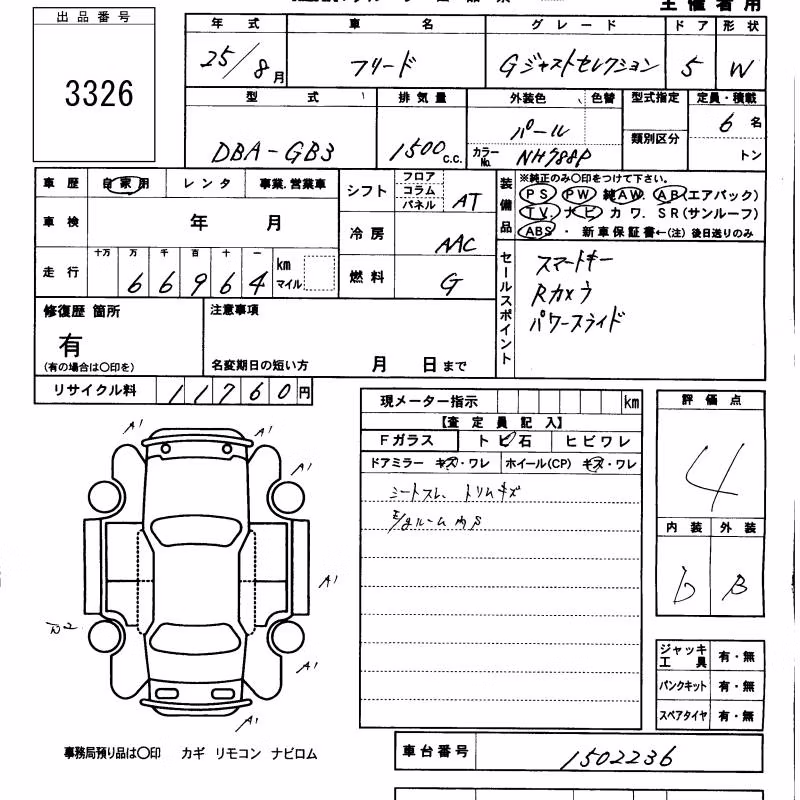 主催者用
出品番号
3326
年式 車名 グレード ドア 形状
25/8月 フリード Gジャストセレクション 5 W
型式 排気量 外装色 色替 型式指定 定員・積載
DBA-GB3 1500c.c. パール 6名
カラーNo. NH788P 類別区分 トン
車歴 自家用 レンタ 事業.営業車
車検 年 月
走行 十万 万 千 百 十 一
66964 km マイル
シフト フロア コラム パネル AT
冷房 AAC
燃料 G
装備品 ※純正のみ○印をつけて下さい。
PS PW 純AW. AB(エアバック)
TV. ナビ カワ. SR(サンルーフ)
ABS ・ 新車保証書←(注) 後日送りのみ
セールスポイント
スマートキー
Rカメラ
パワースライド
修復歴 箇所 注意事項
有
(有の場合は○印を) 名変期日の短い方 月 日まで
リサイクル料 11760円
現メーター指示 km
【査定員記入】
Fガラス トビ石 ヒビワレ
ドアミラー キズ・ワレ ホイール(CP) キズ・ワレ
シートスレ トリムキズ
評価点
4
内装 外装
b B
A' A'
A' A'
A'
A'
A'
ジャッキ工具 有・無
パンクキット 有・無
スペアタイヤ 有・無
事務局預り品は○印 カギ リモコン ナビロム
車台番号 1502236